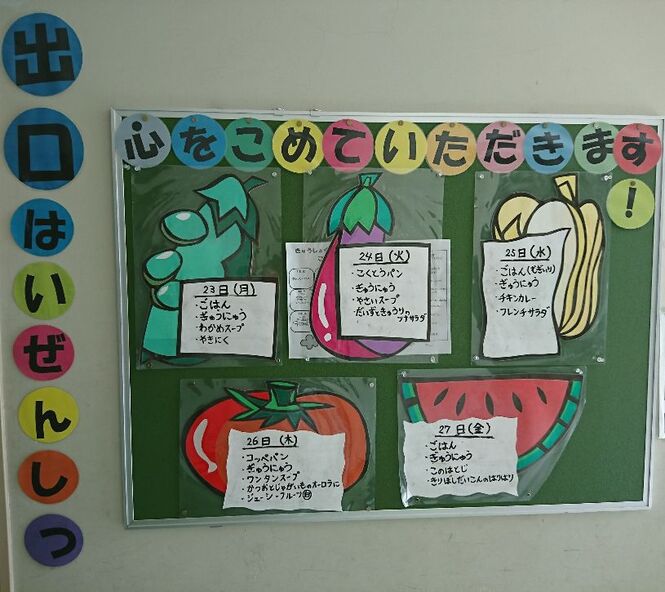 出口はいぜんしつ
心をこめていただきます!
23日(月)
・ごはん
・ぎゅうにゅう
・わかめスープ
・やきにく
24日(火)
・こくとうパン
・ぎゅうにゅう
・やさいスープ
・だいずときゅうりの
ツナサラダ
25日(水)
・ごはん(むぎいり)
・ぎゅうにゅう
・チキンカレー
・フレンチサラダ
26日(木)
・コッペパン
・ぎゅうにゅう
・ワンタンスープ
・かつおとじゃがいものオーロラに
・ジューシーフルーツ
27日(金)
・ごはん
・ぎゅうにゅう
・このはとじ
・きりぼしだいこんのはりはり